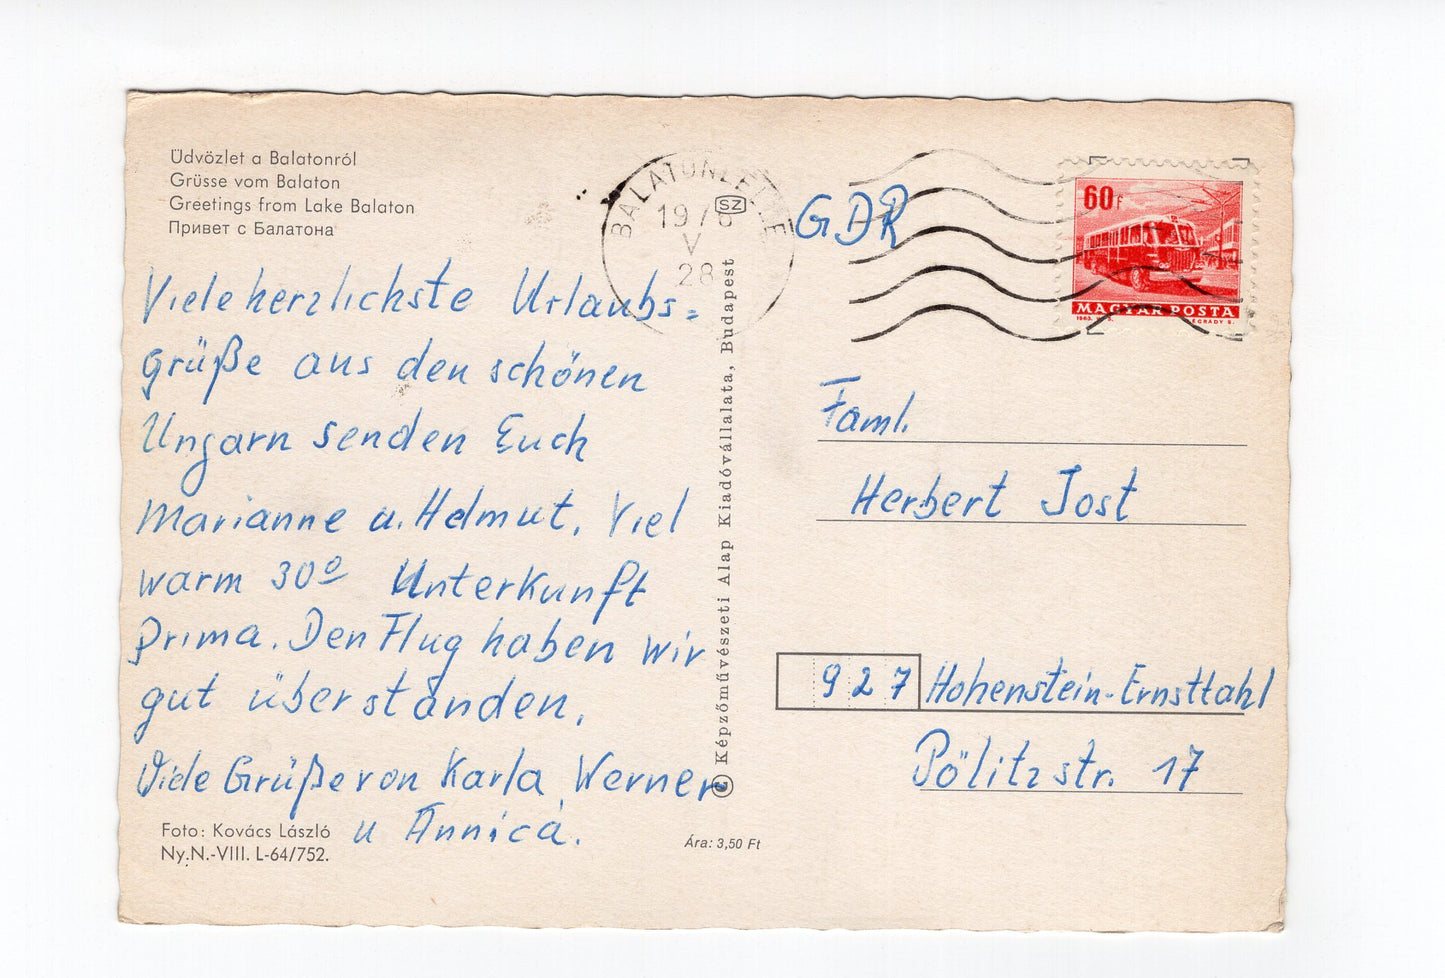 Üdvözlet a Balatonról
Grüsse vom Balaton
Greetings from Lake Balaton
Привет с Балатона
Viele herzlichste Urlaubs=
grüße aus den schönen
Ungarn senden Euch
Marianne u. Helmut. Viel
warm 30º Unterkunft
prima. Den Flug haben wir
gut überstanden.
Viele Grüße von Karla, Werner
u Annica.
Foto: Kovács László
Ny.N.-VIII. L-64/752.
Ára: 3,50 Ft
© Képzőművészeti Alap Kiadóvállalata, Budapest
SZ
V
28
GDR
60f
MAGYAR POSTA
Faml.
Herbert Jost
927 Hohenstein-Ernsttahl
Pölitzstr. 17